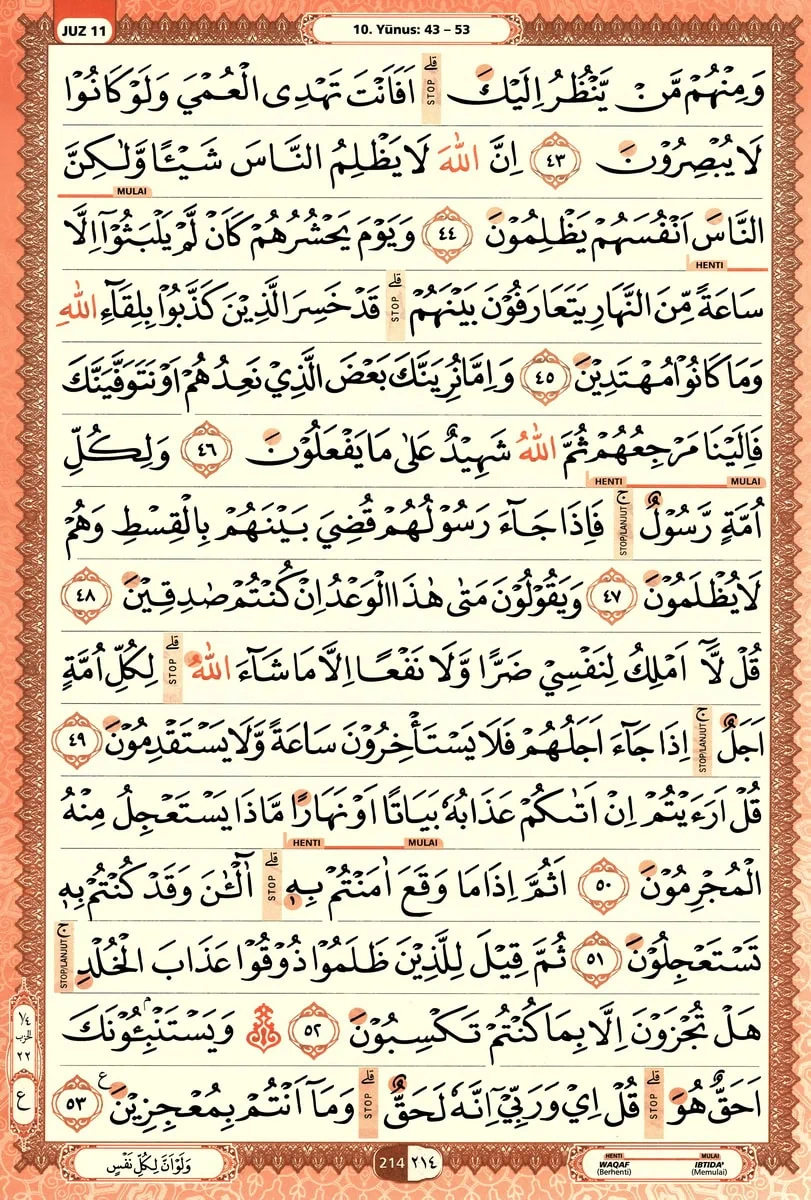 JUZ 11
10. Yūnus: 43 – 53
وَمِنْهُمْ مَّنْ يَّنْظُرُ اِلَيْكَ ۗ STOP اَفَاَنْتَ تَهْدِى الْعُمْيَ وَلَوْ كَانُوْا
لَا يُبْصِرُوْنَ ٤٣ اِنَّ اللّٰهَ لَا يَظْلِمُ النَّاسَ شَيْـًٔا وَّلٰكِنَّ
MULAI
النَّاسَ اَنْفُسَهُمْ يَظْلِمُوْنَ ٤٤ وَيَوْمَ يَحْشُرُهُمْ كَاَنْ لَّمْ يَلْبَثُوْٓا اِلَّا
HENTI
سَاعَةً مِّنَ النَّهَارِ يَتَعَارَفُوْنَ بَيْنَهُمْ ۗ STOP قَدْ خَسِرَ الَّذِيْنَ كَذَّبُوْا بِلِقَاۤءِ اللّٰهِ
وَمَا كَانُوْا مُهْتَدِيْنَ ٤٥ وَاِمَّا نُرِيَنَّكَ بَعْضَ الَّذِيْ نَعِدُهُمْ اَوْ نَتَوَفَّيَنَّكَ
فَاِلَيْنَا مَرْجِعُهُمْ ثُمَّ اللّٰهُ شَهِيْدٌ عَلٰى مَا يَفْعَلُوْنَ ٤٦ وَلِكُلِّ
HENTI MULAI
اُمَّةٍ رَّسُوْلٌ ۚ STOP/LANJUT فَاِذَا جَاۤءَ رَسُوْلُهُمْ قُضِيَ بَيْنَهُمْ بِالْقِسْطِ وَهُمْ
لَا يُظْلَمُوْنَ ٤٧ وَيَقُوْلُوْنَ مَتٰى هٰذَا الْوَعْدُ اِنْ كُنْتُمْ صٰدِقِيْنَ ٤٨
قُلْ لَّآ اَمْلِكُ لِنَفْسِيْ ضَرًّا وَّلَا نَفْعًا اِلَّا مَا شَاۤءَ اللّٰهُ ۗ STOP لِكُلِّ اُمَّةٍ
اَجَلٌ ۚ STOP/LANJUT اِذَا جَاۤءَ اَجَلُهُمْ فَلَا يَسْتَأْخِرُوْنَ سَاعَةً وَّلَا يَسْتَقْدِمُوْنَ ٤٩
قُلْ اَرَءَيْتُمْ اِنْ اَتٰىكُمْ عَذَابُهٗ بَيَاتًا اَوْ نَهَارًا مَّاذَا يَسْتَعْجِلُ مِنْهُ
HENTI MULAI
الْمُجْرِمُوْنَ ٥٠ اَثُمَّ اِذَا مَا وَقَعَ اٰمَنْتُمْ بِهٖ ۗ STOP اٰۤلْـٰٔنَ وَقَدْ كُنْتُمْ بِهٖ
تَسْتَعْجِلُوْنَ ٥١ ثُمَّ قِيْلَ لِلَّذِيْنَ ظَلَمُوْا ذُوْقُوْا عَذَابَ الْخُلْدِ ۚ STOP/LANJUT
هَلْ تُجْزَوْنَ اِلَّا بِمَا كُنْتُمْ تَكْسِبُوْنَ ٥٢ وَيَسْتَنْۢبِـُٔوْنَكَ
اَحَقٌّ هُوَ ۗ STOP قُلْ اِيْ وَرَبِّيْٓ اِنَّهٗ لَحَقٌّ ۗ STOP وَمَآ اَنْتُمْ بِمُعْجِزِيْنَ ࣖ ٥٣
١/٤
الحزب
٢٢
ع
وَلَوْ اَنَّ لِكُلِّ نَفْسٍ
214 ٢١٤
HENTI MULAI
WAQAF IBTIDA'
(Berhenti) (Memulai)